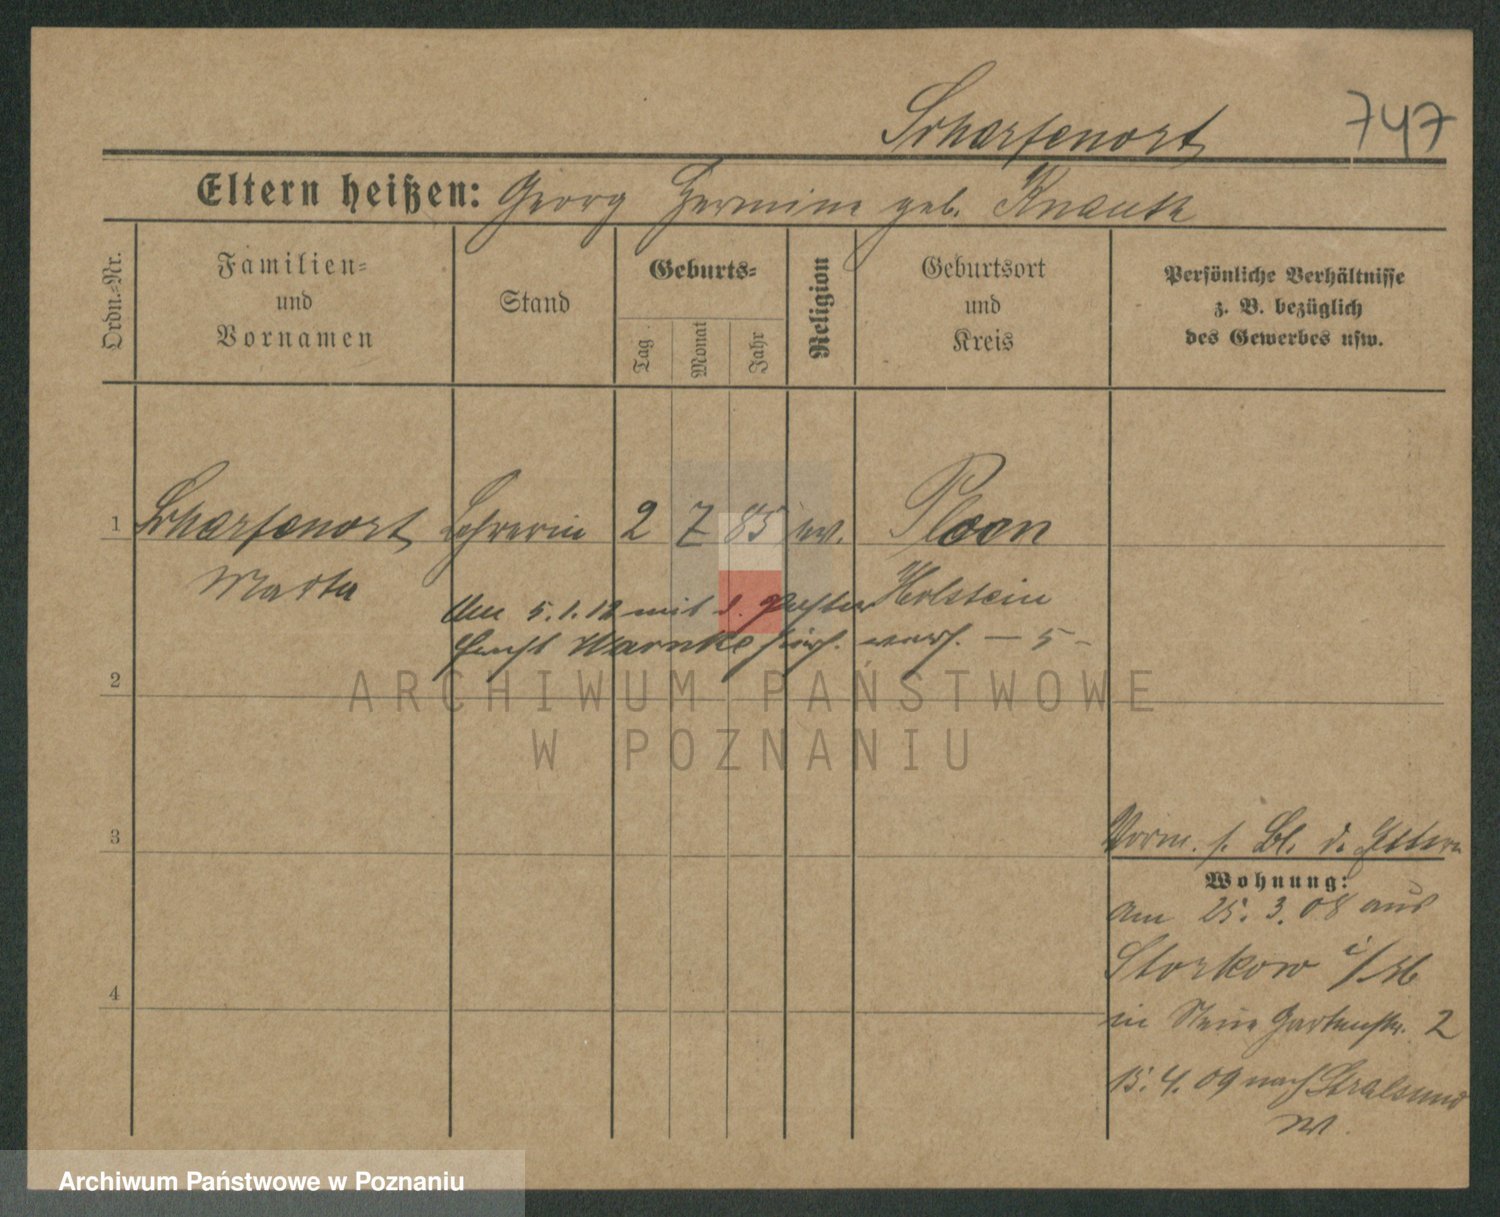 Scharfenort
747
Eltern heißen: Georg Hermine geb. Knauth
Ordn.-Nr.
Familien-
und
Vornamen
Stand
Geburts-
Tag
Monat
Jahr
Religion
Geburtsort
und
Kreis
Persönliche Verhältnisse
z. B. bezüglich
des Gewerbes usw.
1 Scharfenort Lehrerin 2 7 85 ev. Ploen
Marta Holstein
Am 5.1.12 mit d.
Ernst Warnke verh. — 5 -
2
ARCHIWUM PAŃSTWOWE
W POZNANIU
3
Vorm. s. Bl. d. Eltern
Wohnung:
am 25. 3. 08 aus
Storkow i/M
4
in Neue Gartenstr. 2
15. 4. 09 nach Stralsund
Archiwum Państwowe w Poznaniu